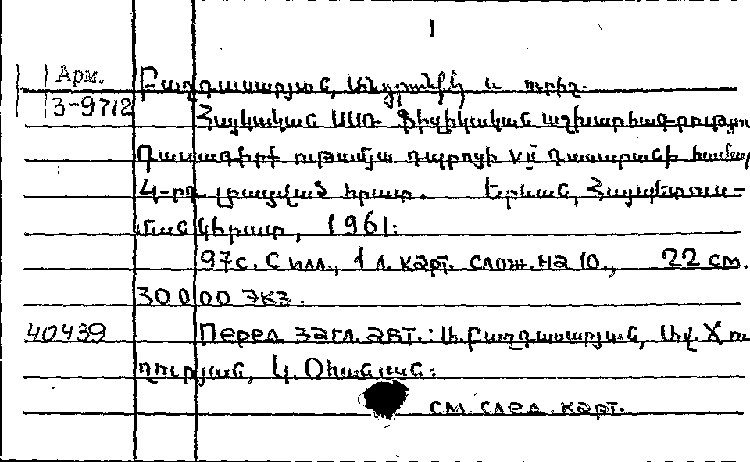 1
Арм.
3-9712
Բաղդասարյան, Անդրանիկ և ուրիշ.
Հայկական ՍՍՌ ֆիզիկական աշխարհագրություն
Դասագիրք ութամյա դպրոցի VII դասարանի համար
4-րդ լրացված հրատ. Երևան, Հայպետուս-
մանկհրատ, 1961:
97с. С илл., 1 л. карт. слож. на 10., 22 см.
30000 экз.
40439 Перед загл. авт.: Ա. Բաղդասարյան, Ավ.
Կ. Օհանյան:
см. след. карт.